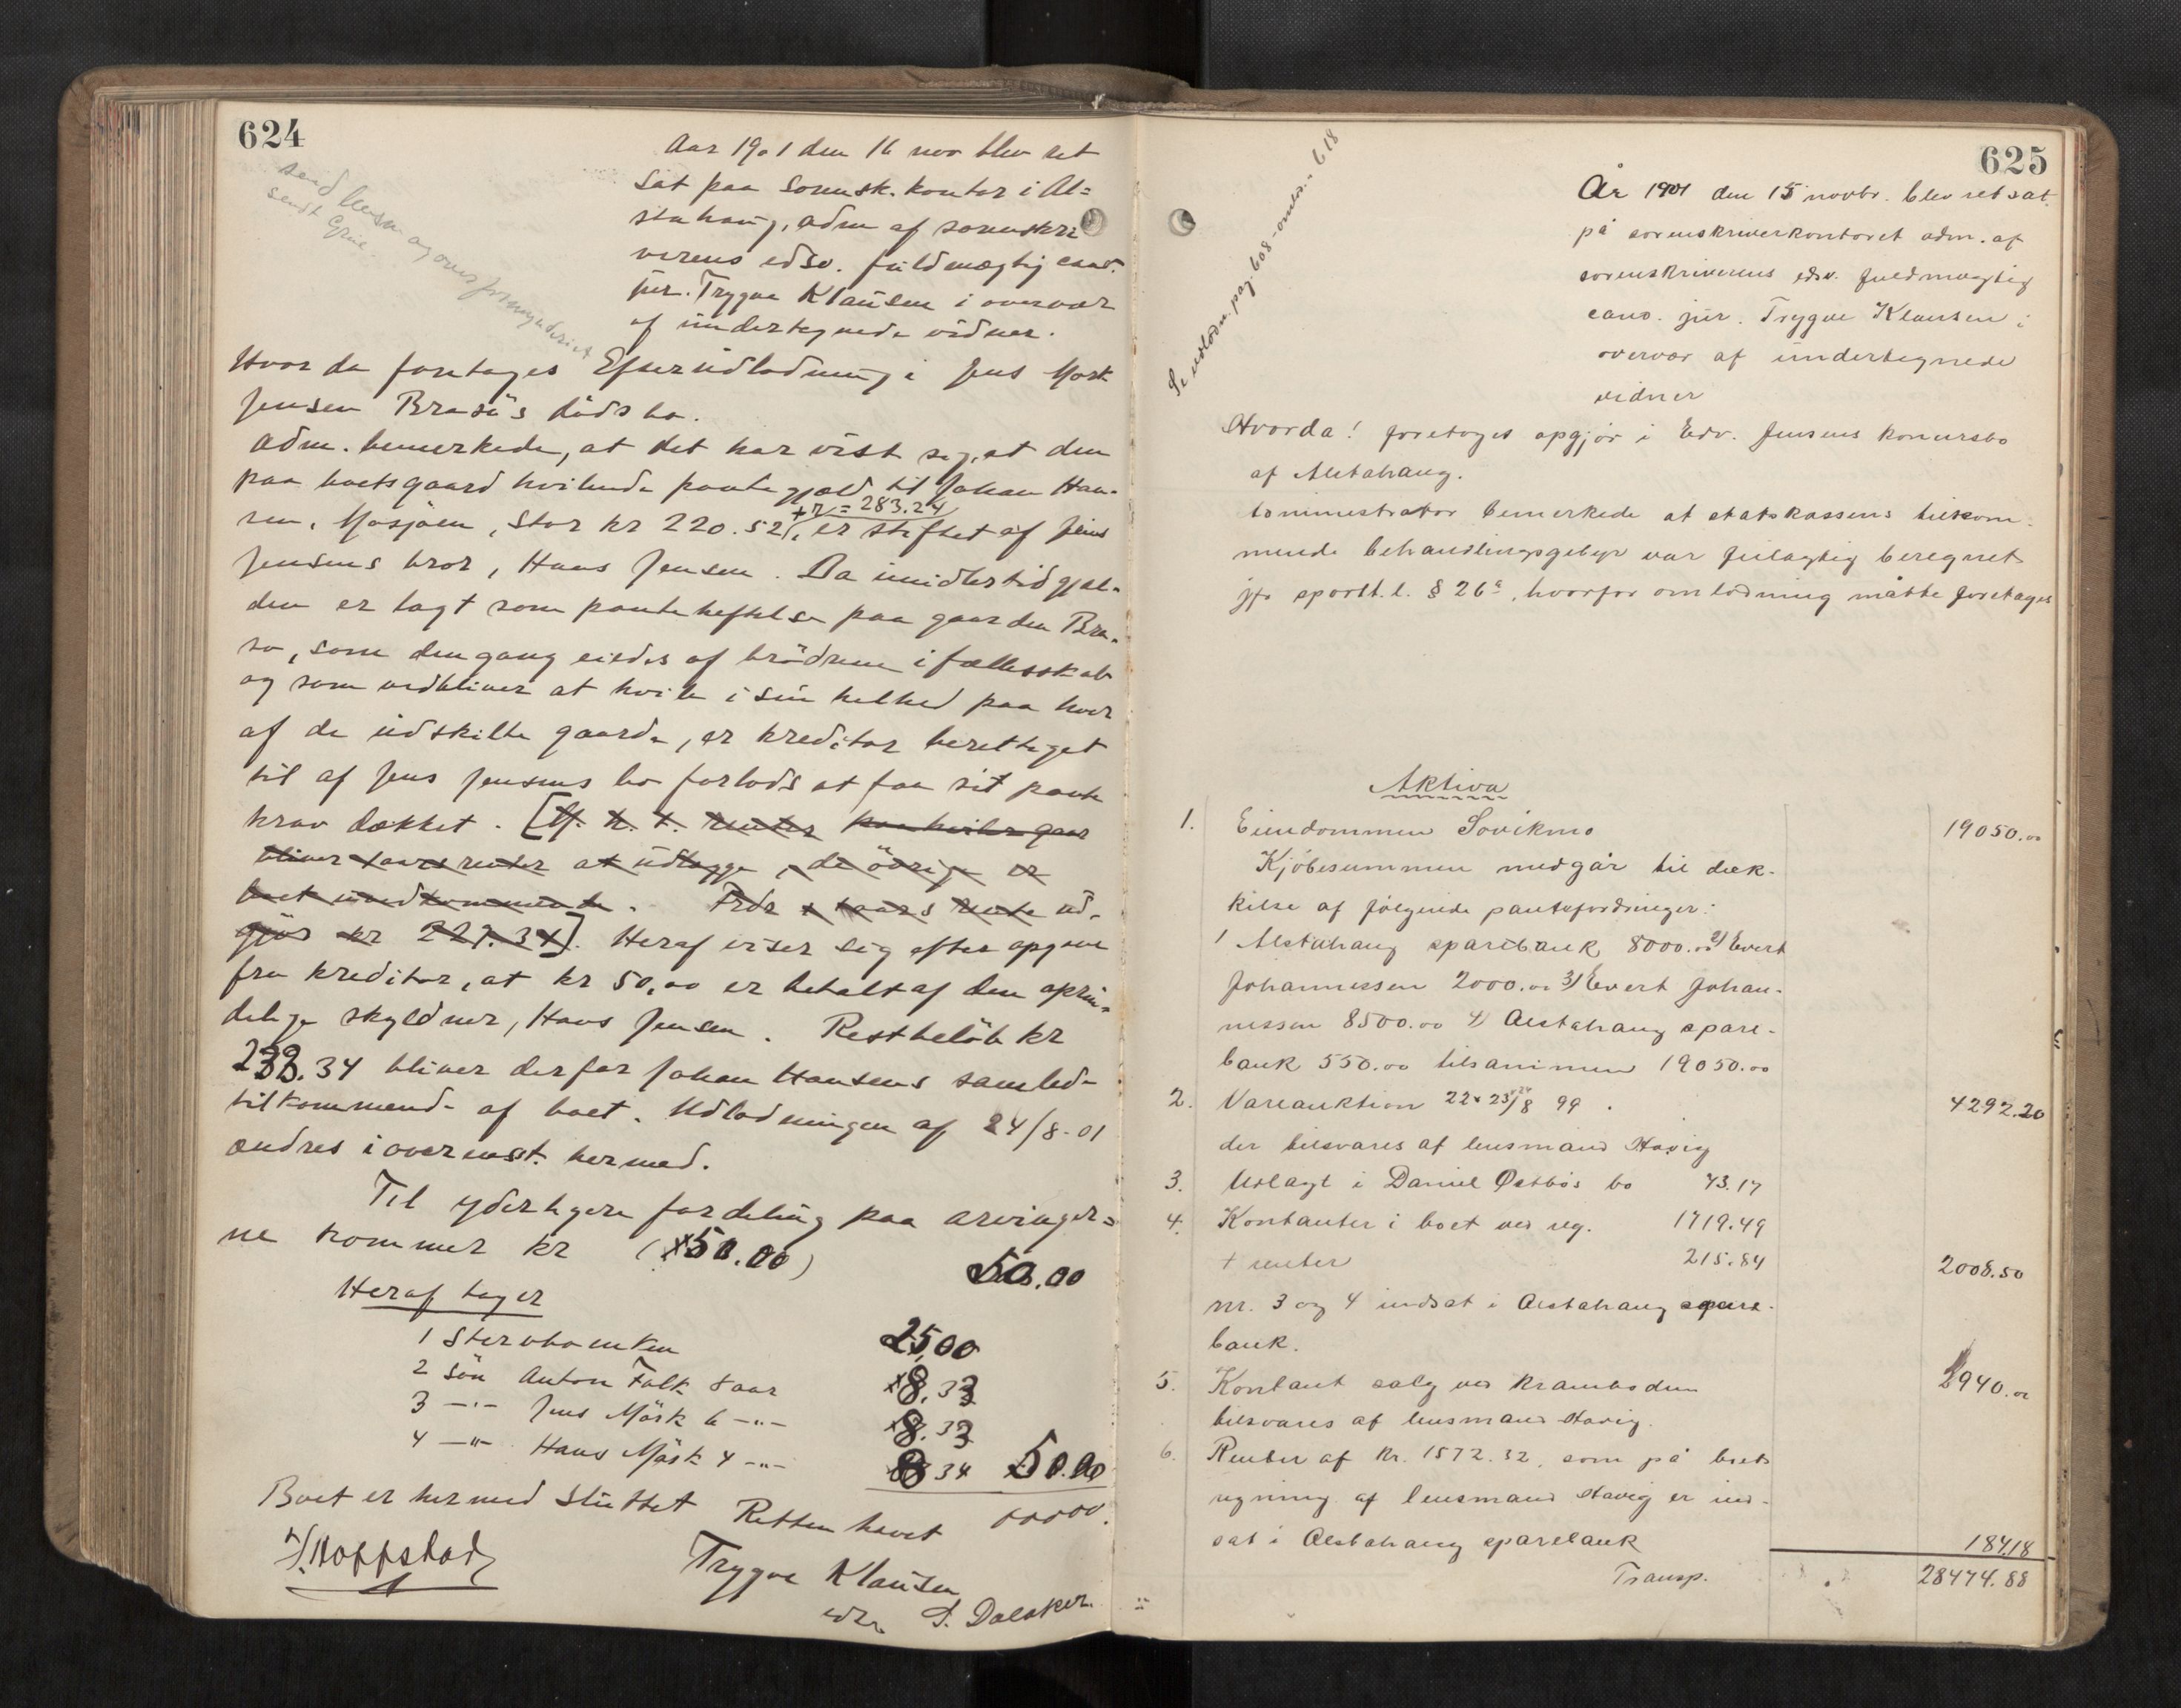 624
Aar 1901 den 16 nov blev ret
sat paa sorensk. kontor i Al=
stahaug, adm af sorenskri
verens edsv. fuldmægtig cand.
jur. Trygve Klausen i overvær
af undertegnede vidner.
send lensm og overformynderiet
sendt
Hvor da foretages Efterudlodning i Jens Mørk
Jensen Brasøs dødsbo.
Adm. bemerkede, at det har vist sig, at den
paa boets gaard hvilende pantegjæld til Johan Han-
+ r = 283.24
sen, Mosjøen, stor kr 220.52, er stiftet af Jens
Jensens bror, Hans Jensen. Da imidlertid gjæl-
den er tagt som panteheftelse paa gaarden Bra-
sø, som dengang eiedes af brødrene i fællesskab
og som vedbliver at hvile i sin helhed paa hver
af de udskilte gaarde, er kreditor berettiget
til af Jens Jensens bo forlods at faa sit pante
krav dækket. [ renter
bliver renter at udlægge, de øvrige er
boet uvedkommende. rente ud-
gjør kr 227.34]. Heraf viser sig efter opgave
fra kreditor, at kr 50,00 er betalt af den oprin-
delige skyldner, Hans Jensen. Restbeløb kr
233.34 bliver derfor Johan Hansens samlede
tilkommende af boet. Udlodningen af 24/8-01
ændres i overensst. hermed.
Til yderligere fordeling paa arvinger=
ne kommer kr (50.00) 50.00
Heraf tager
1 Stervboenken 25,00
2 Søn Anton Falk 8 aar 8.33
3 -"- Jens Mørk 6 -"- 8.33
4 -"- Hans Mørk 4 -"- 8 34 50.00
Boet er hermed sluttet Retten hævet 00000.
Hoppstad
Trygve Klausen
edsv. S. Dalaker.
625
Se udlodn. pag. 608 - omlo.: 618
År 1901 den 15 novbr. blev ret sat
på sorenskriverkontoret adm. af
sorenskriverens edsv. fuldmægtig
cand. jur. Trygve Klausen i
overvær af undertegnede
vidner
Hvorda! foretoges opgjør i Edv. Jensens konkursbo
af Alstahaug.
Administrator bemerkede at statskassens tilkom-
mende behandlingsgebyr var feilagtig beregnet
jfr sportl. l. § 26ª, hvorfor omlodning måtte foretages
Aktiva
1. Eiendommen Søvikmo 19050.00
Kjøbesummen medgår til dæk-
kelse af følgende pantefordringer:
1 Alstahaug sparebank 8000.00 2) Evert
Johannessen 2000.00 3) Evert Johan-
nessen 8500.00 4) Alstahaug spare-
bank 550.00 tilsammen 19050.00
2. Vareauktion 22 & 23/8 99. 4292.20
der tilsvares af lensmand Havig
3. Udlagt i Daniel Østbøs bo 73.17
4. Kontanter i boet ved reg. 1719.49
+ renter 215.84 2008.50
nr. 3 og 4 indsat i Alstahaug spare-
bank.
5. Kontant salg ved kramboden 2940.00
tilsvares af lensmand Havig.
6. Renter af kr. 1572.32, som på boets
regning af lensmand Havig er ind-
sat i Alstahaug sparebank 184.18
Transp. 28474.88